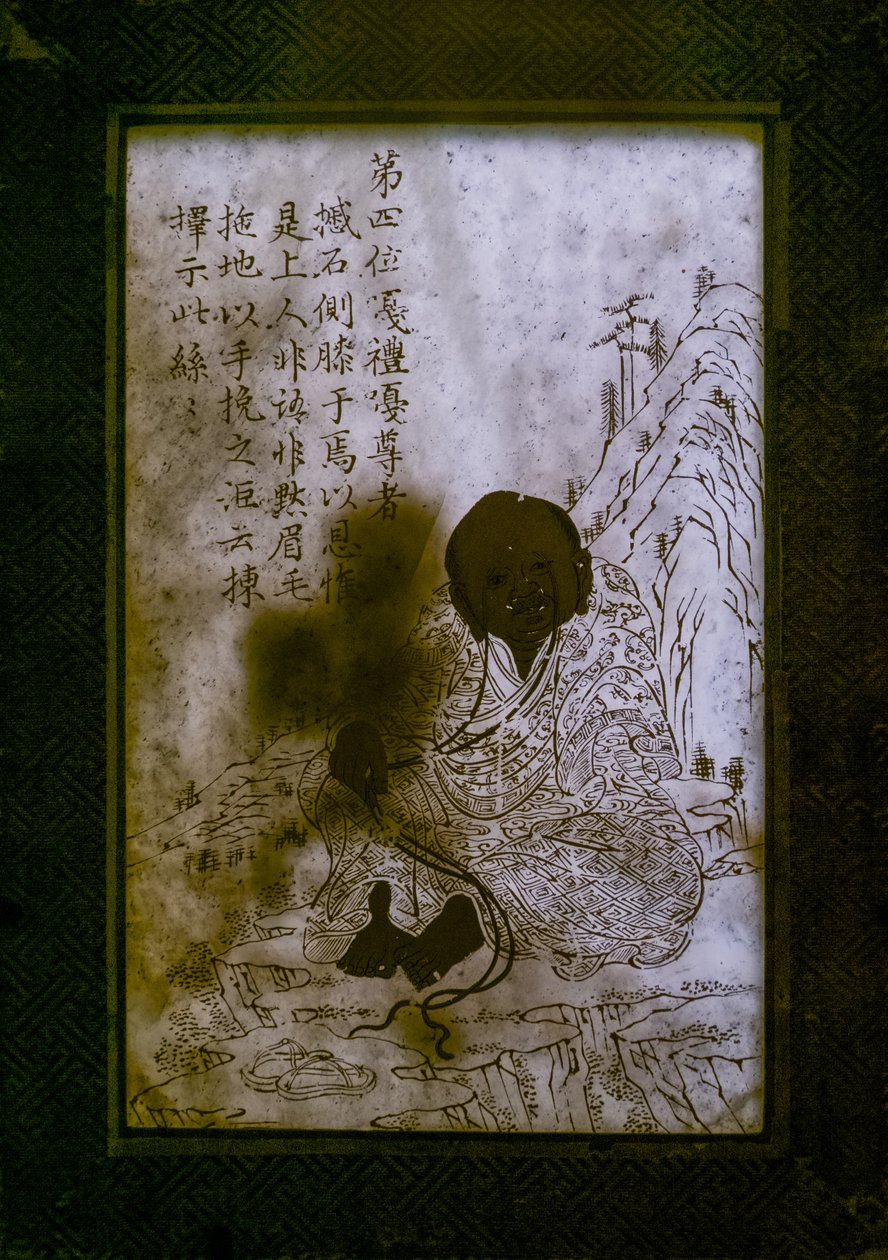 第四位嘎禮嘎尊者
憾石側膝于焉以息惟
是上人非語非默眉毛
拖地以手挽之洰云揀
擇示此絲〻